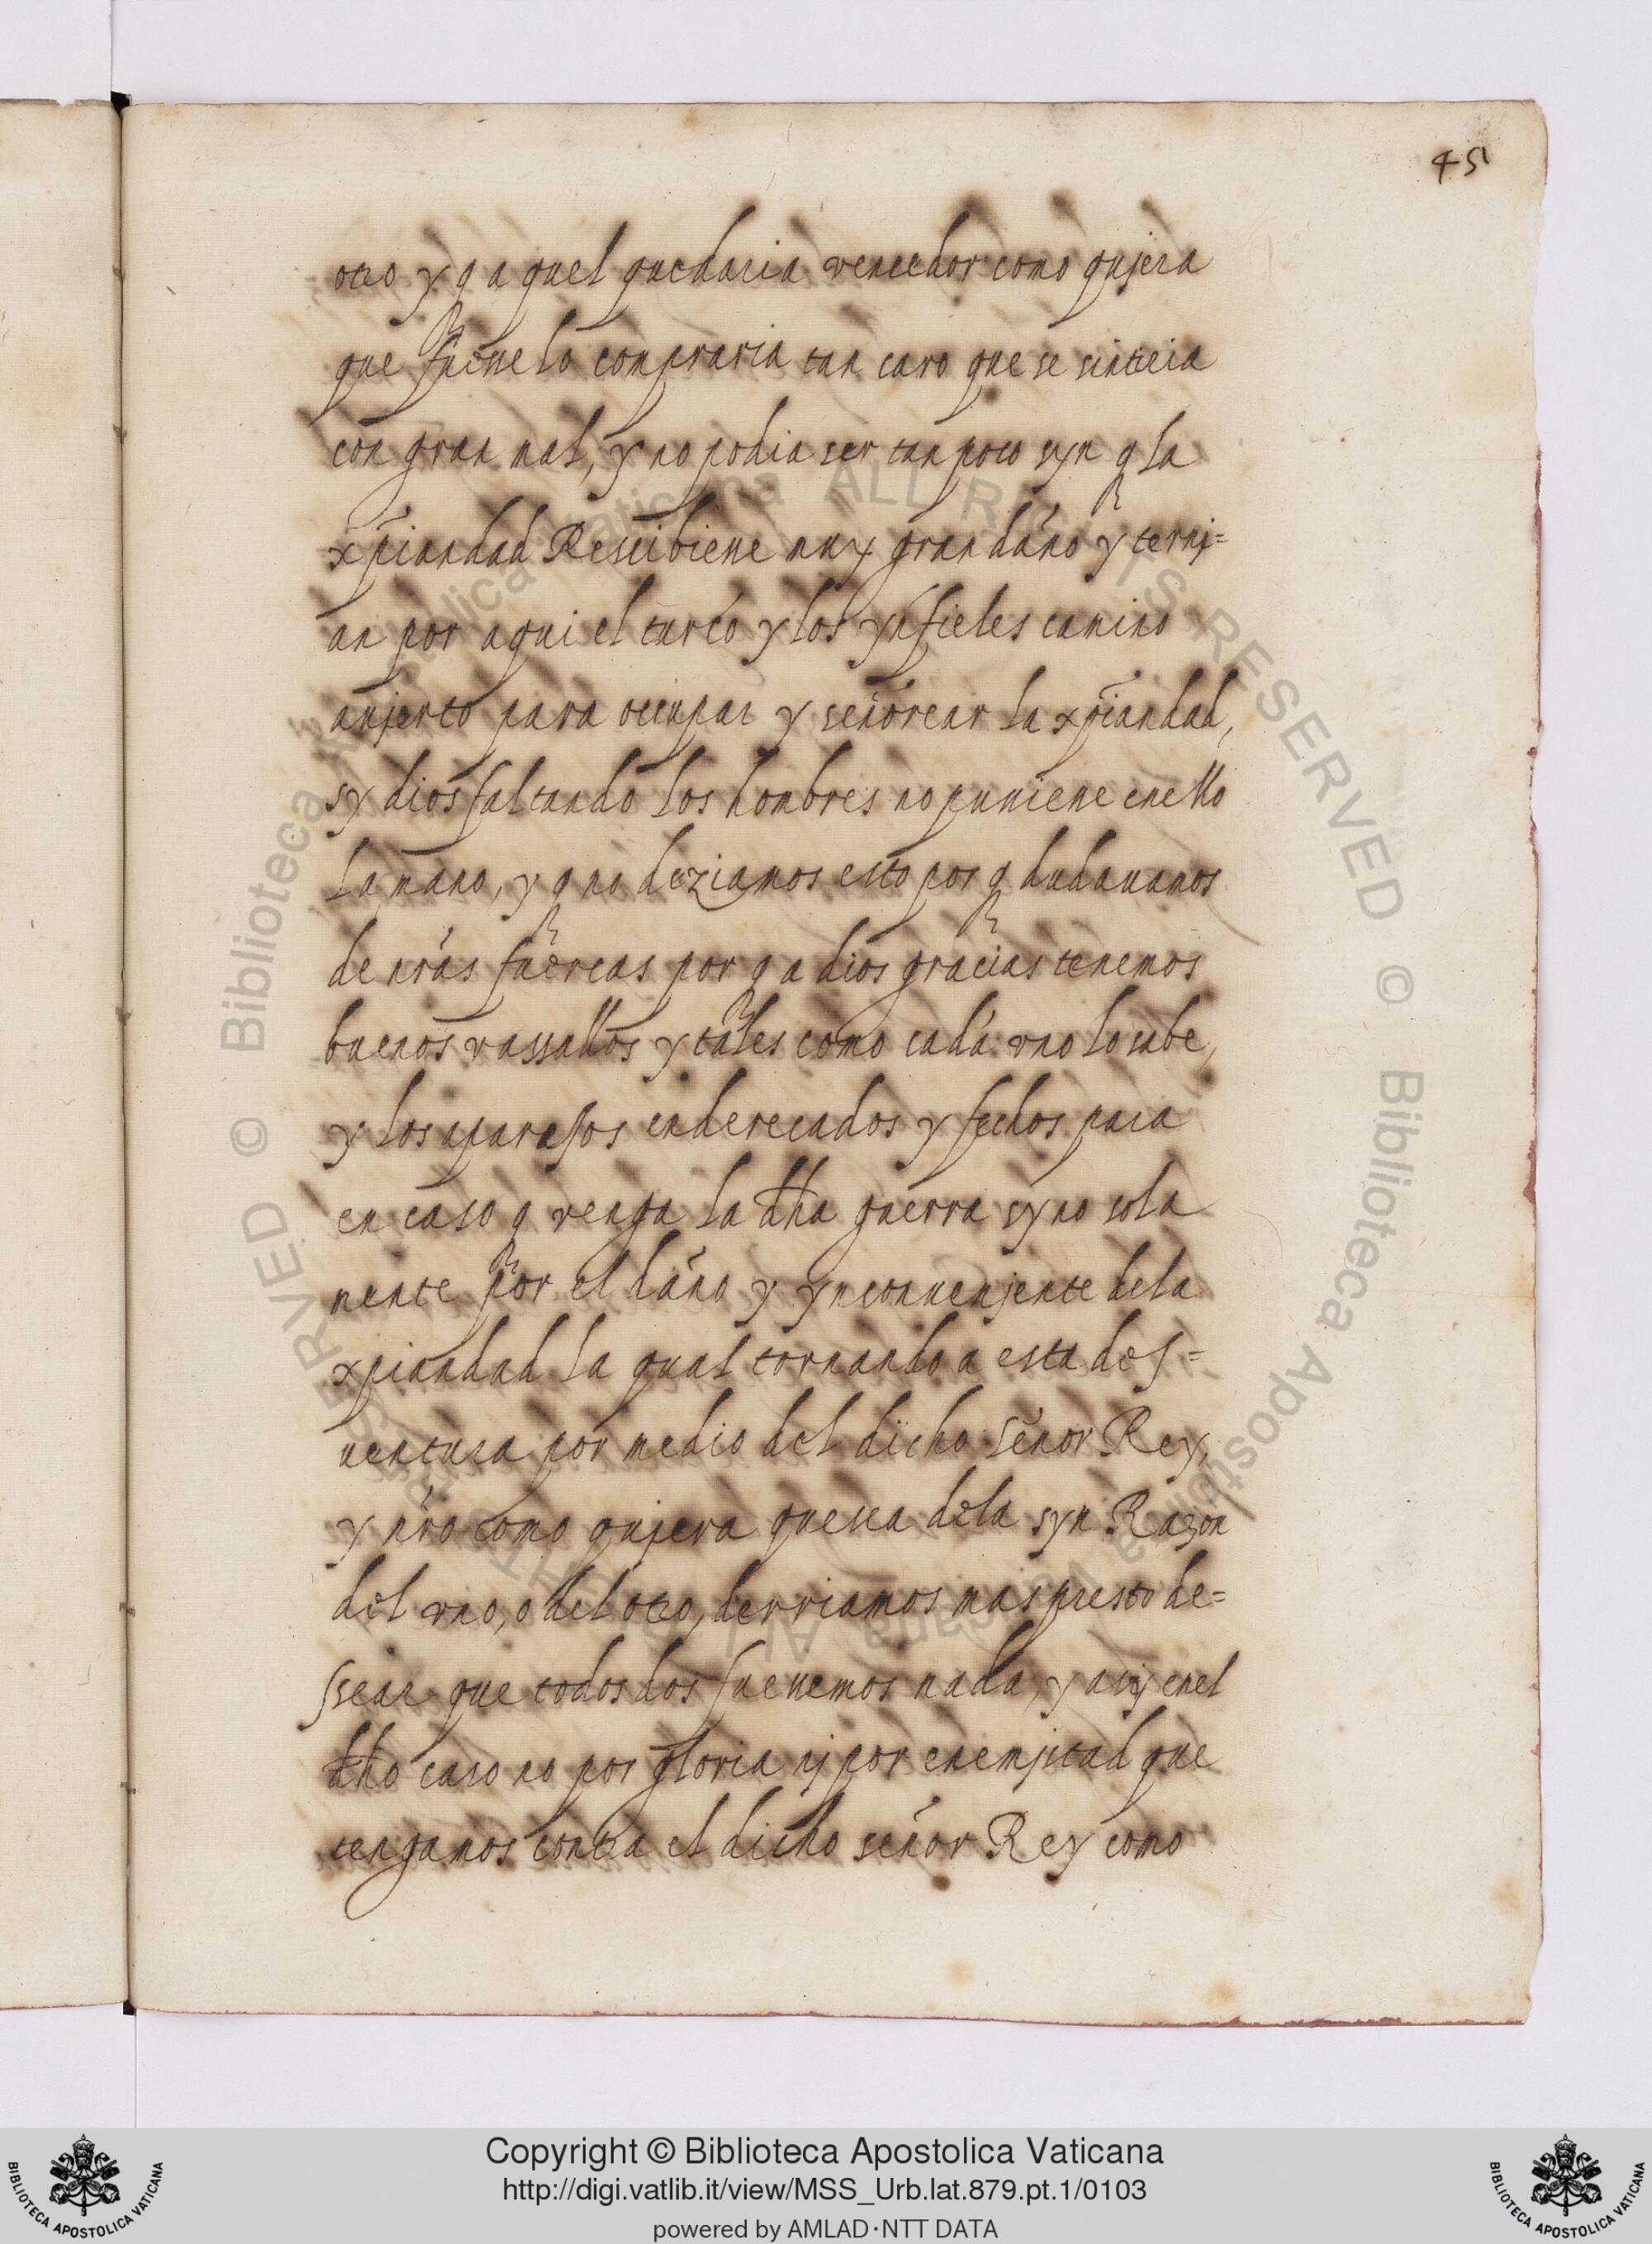 45
otro y q̃ aquel quedaria vencedor como qujera
que fuesse lo compraria tan caro que se sintiria
con gran mal, y no podia ser tan poco syn q̃ la
xp̃iandad Rescibiesse muy gran daño y ternj=
an por aqui el turco y los ynfieles camino
aujerto para occupar y señorear la xp̃iandad,
sy dios faltando los hombres no pussiesse enello
la mano, y q̃ no deziamos esto por q̃ dudauamos
de nr̃as fuercas por q̃ a dios gracias tenemos
buenos vassallos y tales como cada vno lo sabe,
y los aparejos enderecados y fechos para
en caso q̃ venga la dha guerra syno sola
mente por el daño y ynconuenjente dela
xpiandad la qual tornando a esta des=
uentura por medio del dicho señor Rey,
y nr̃o como qujera quesea dela syn Razon
del vno, o del otro, derriamos mas presto de=
ssear que todos dos fuessemos nada, y assy enel
dho caso no por gloria nj por enemjstad que
tengamos contra el dicho señor Rey como
© Biblioteca Apostolica Vaticana ALL RIGHTS RESERVED © Biblioteca Apostolica Vaticana ALL RIGHTS RESERVED
Copyright © Biblioteca Apostolica Vaticana
http://digi.vatlib.it/view/MSS_Urb.lat.879.pt.1/0103
powered by AMLAD·NTT DATA
BIBLIOTECA APOSTOLICA VATICANA
BIBLIOTECA APOSTOLICA VATICANA